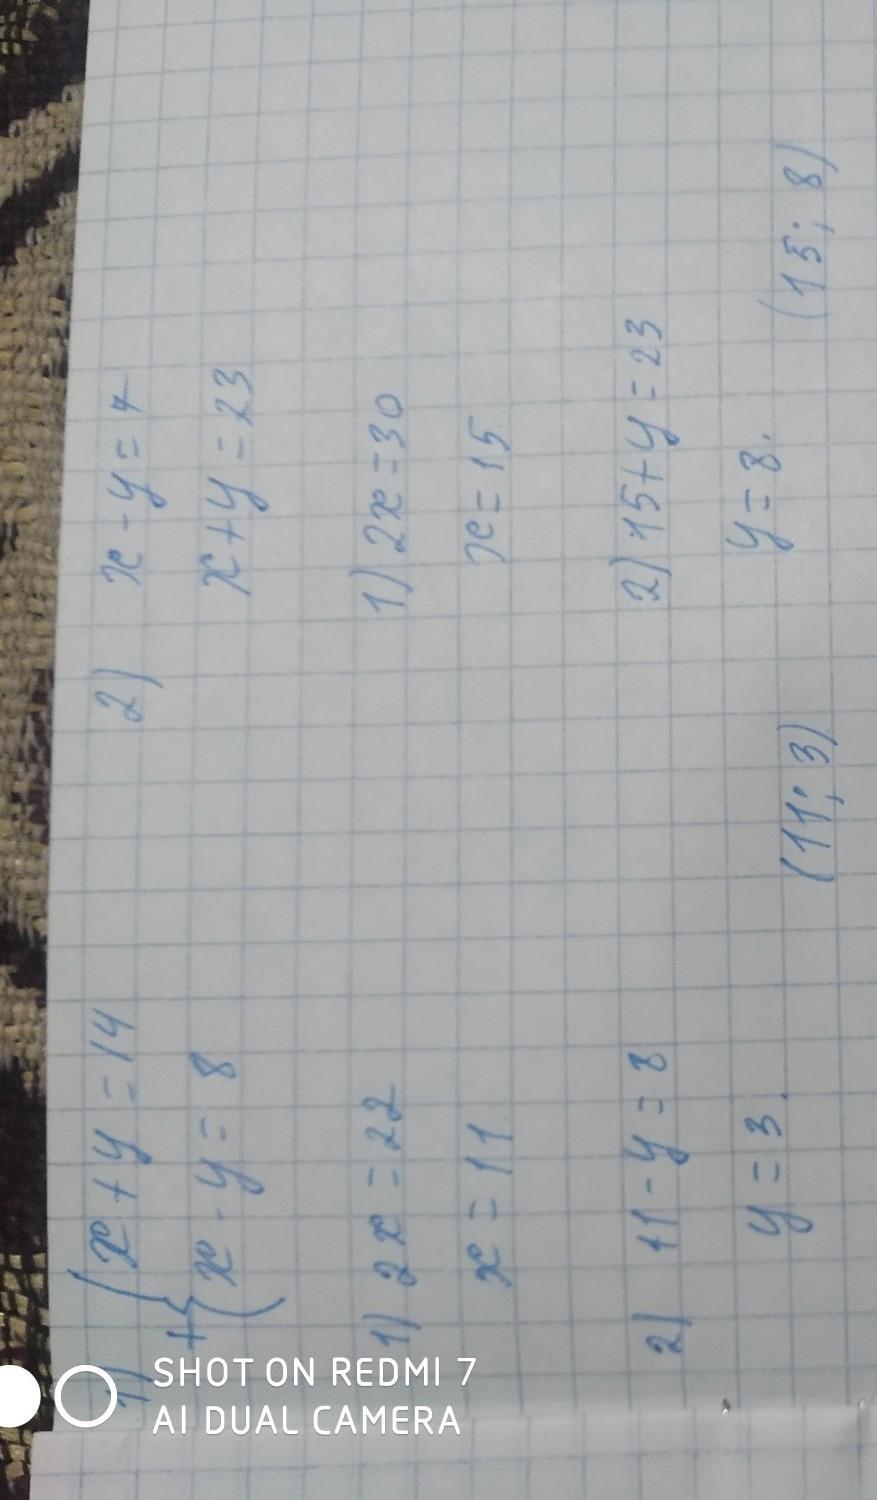 1) { x + y = 14
+ { x - y = 8
1) 2x = 22
x = 11
2) 11 - y = 8
y = 3.
(11; 3)
2) x - y = 7
x + y = 23
1) 2x = 30
x = 15
2) 15 + y = 23
y = 8.
(15; 8)
SHOT ON REDMI 7
AI DUAL CAMERA